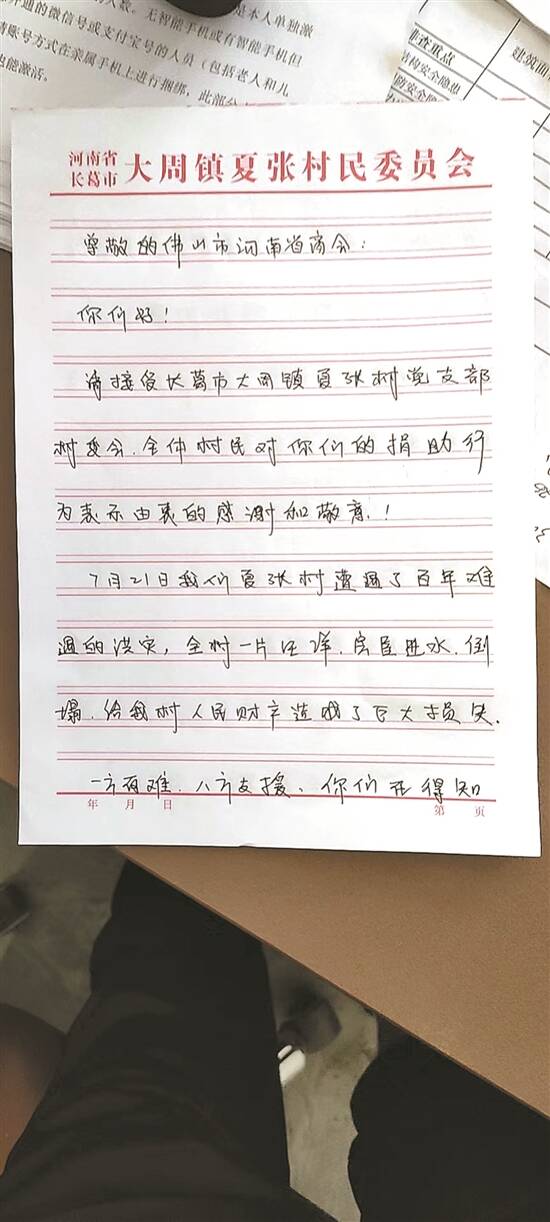 人数。无智能手机或有智能手机但
请账号方式在亲属手机上进行捆绑，此部分
也能激活。
开通的微信号或支付宝号的人员（包括老人和儿
是本人单独激
非查重点
建筑面
结构安全隐患
防安全隐
河南省
长葛市
大周镇夏张村民委员会
尊敬的佛山市河南省商会：
你们好！
请接受长葛市大周镇夏张村党支部
村委会、全体村民对你们的捐助行
为表示由衷的感谢和敬意！
7月21日我们夏张村遭遇了百年难
遇的洪灾，全村一片汪洋、房屋进水、倒
塌、给我村人民财产造成了巨大损失.
一方有难、八方支援、你们在得知
年 月 日
第 页